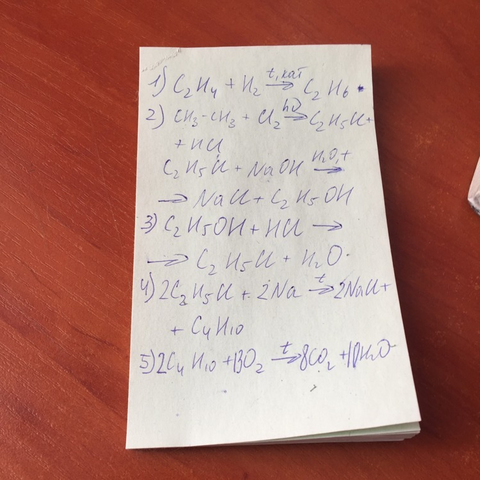 1) C2H4 + H2 t, кат → C2H6
2) CH3-CH3 + Cl2 hν → C2H5Cl +
+ HCl
C2H5Cl + NaOH H2O, t →
→ NaCl + C2H5OH
3) C2H5OH + HCl →
→ C2H5Cl + H2O
4) 2C2H5Cl + 2Na t → 2NaCl +
+ C4H10
5) 2C4H10 + 13O2 t → 8CO2 + 10H2O